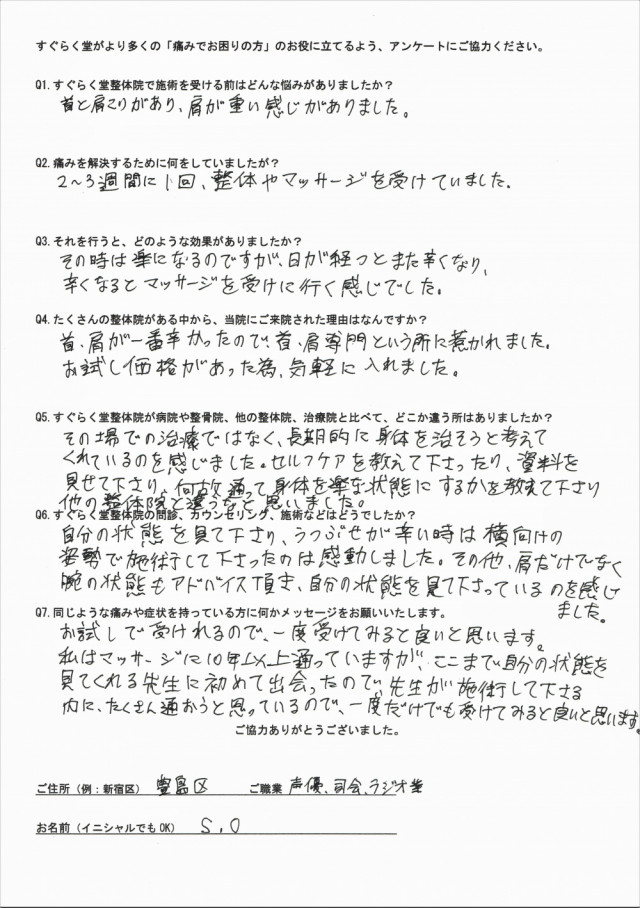 すぐらく堂がより多くの「痛みでお困りの方」のお役に立てるよう、アンケートにご協力ください。
Q1.すぐらく堂整体院で施術を受ける前はどんな悩みがありましたか？
首と肩こりがあり、肩が重い感じがありました。
Q2.痛みを解決するために何をしていましたが？
2～3週間に1回、整体やマッサージを受けていました。
Q3.それを行うと、どのような効果がありましたか？
その時は楽になるのですが、日が経つとまた辛くなり、
辛くなるとマッサージを受けに行く感じでした。
Q4.たくさんの整体院がある中から、当院にご来院された理由はなんですか？
首、肩が一番辛かったので、首、肩専門という所に惹かれました。
お試し価格があった為、気軽に入れました。
Q5.すぐらく堂整体院が病院や整骨院、他の整体院、治療院と比べて、どこか違う所はありましたか？
その場での治療ではなく、長期的に身体を治そうと考えて
くれているのを感じました。セルフケアを教えて下さったり、資料を
見せて下さり、何故通って身体を楽な状態にするかを教えて下さり
他の整体院と違うなと思いました。
Q6.すぐらく堂整体院の問診、カウンセリング、施術などはどうでしたか？
自分の状態を見て下さり、うつぶせが辛い時は横向けの
姿勢で施術して下さったのは感動しました。その他、肩だけでなく
腕の状態もアドバイス頂き、自分の状態を見て下さっているのを感じ
ました。
Q7.同じような痛みや症状を持っている方に何かメッセージをお願いいたします。
お試しで受けれるので、一度受けてみると良いと思います。
私はマッサージに10年以上通っていますが、ここまで自分の状態を
見てくれる先生に初めて出会ったので先生が施術して下さる
内に、たくさん通おうと思っているので、一度だけでも受けてみると良いと思います。
ご協力ありがとうございました。
ご住所（例：新宿区） 豊島区 ご職業 声優、司会、ラジオ業
お名前（イニシャルでもOK） S.O